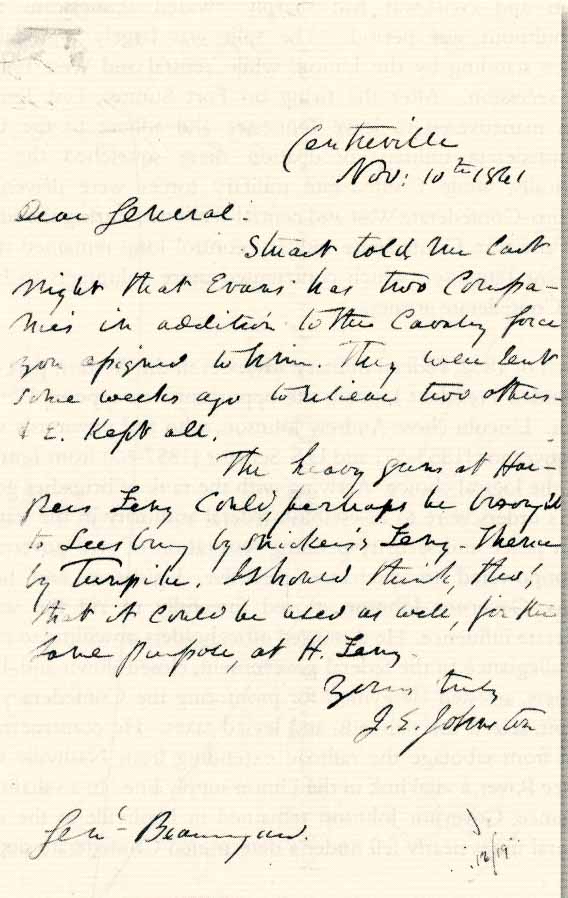 Centreville
Nov: 10th 1861
Dear General
Stuart told me last
night that Evans has two Compa-
nies in addition to the Cavalry force
you assigned to him They were sent
some weeks ago to relieve two others-
& E. Kept all.
The heavy guns at Har-
pers Fery Could, perhaps be brough't
to Leesburg by Snickers's Fery thence
by Turnpike I should think, tho'
that it could be used as well, for the
same purpose at H. Fery
Yours truly
J. E. Johnston
Genl. Beauregard.